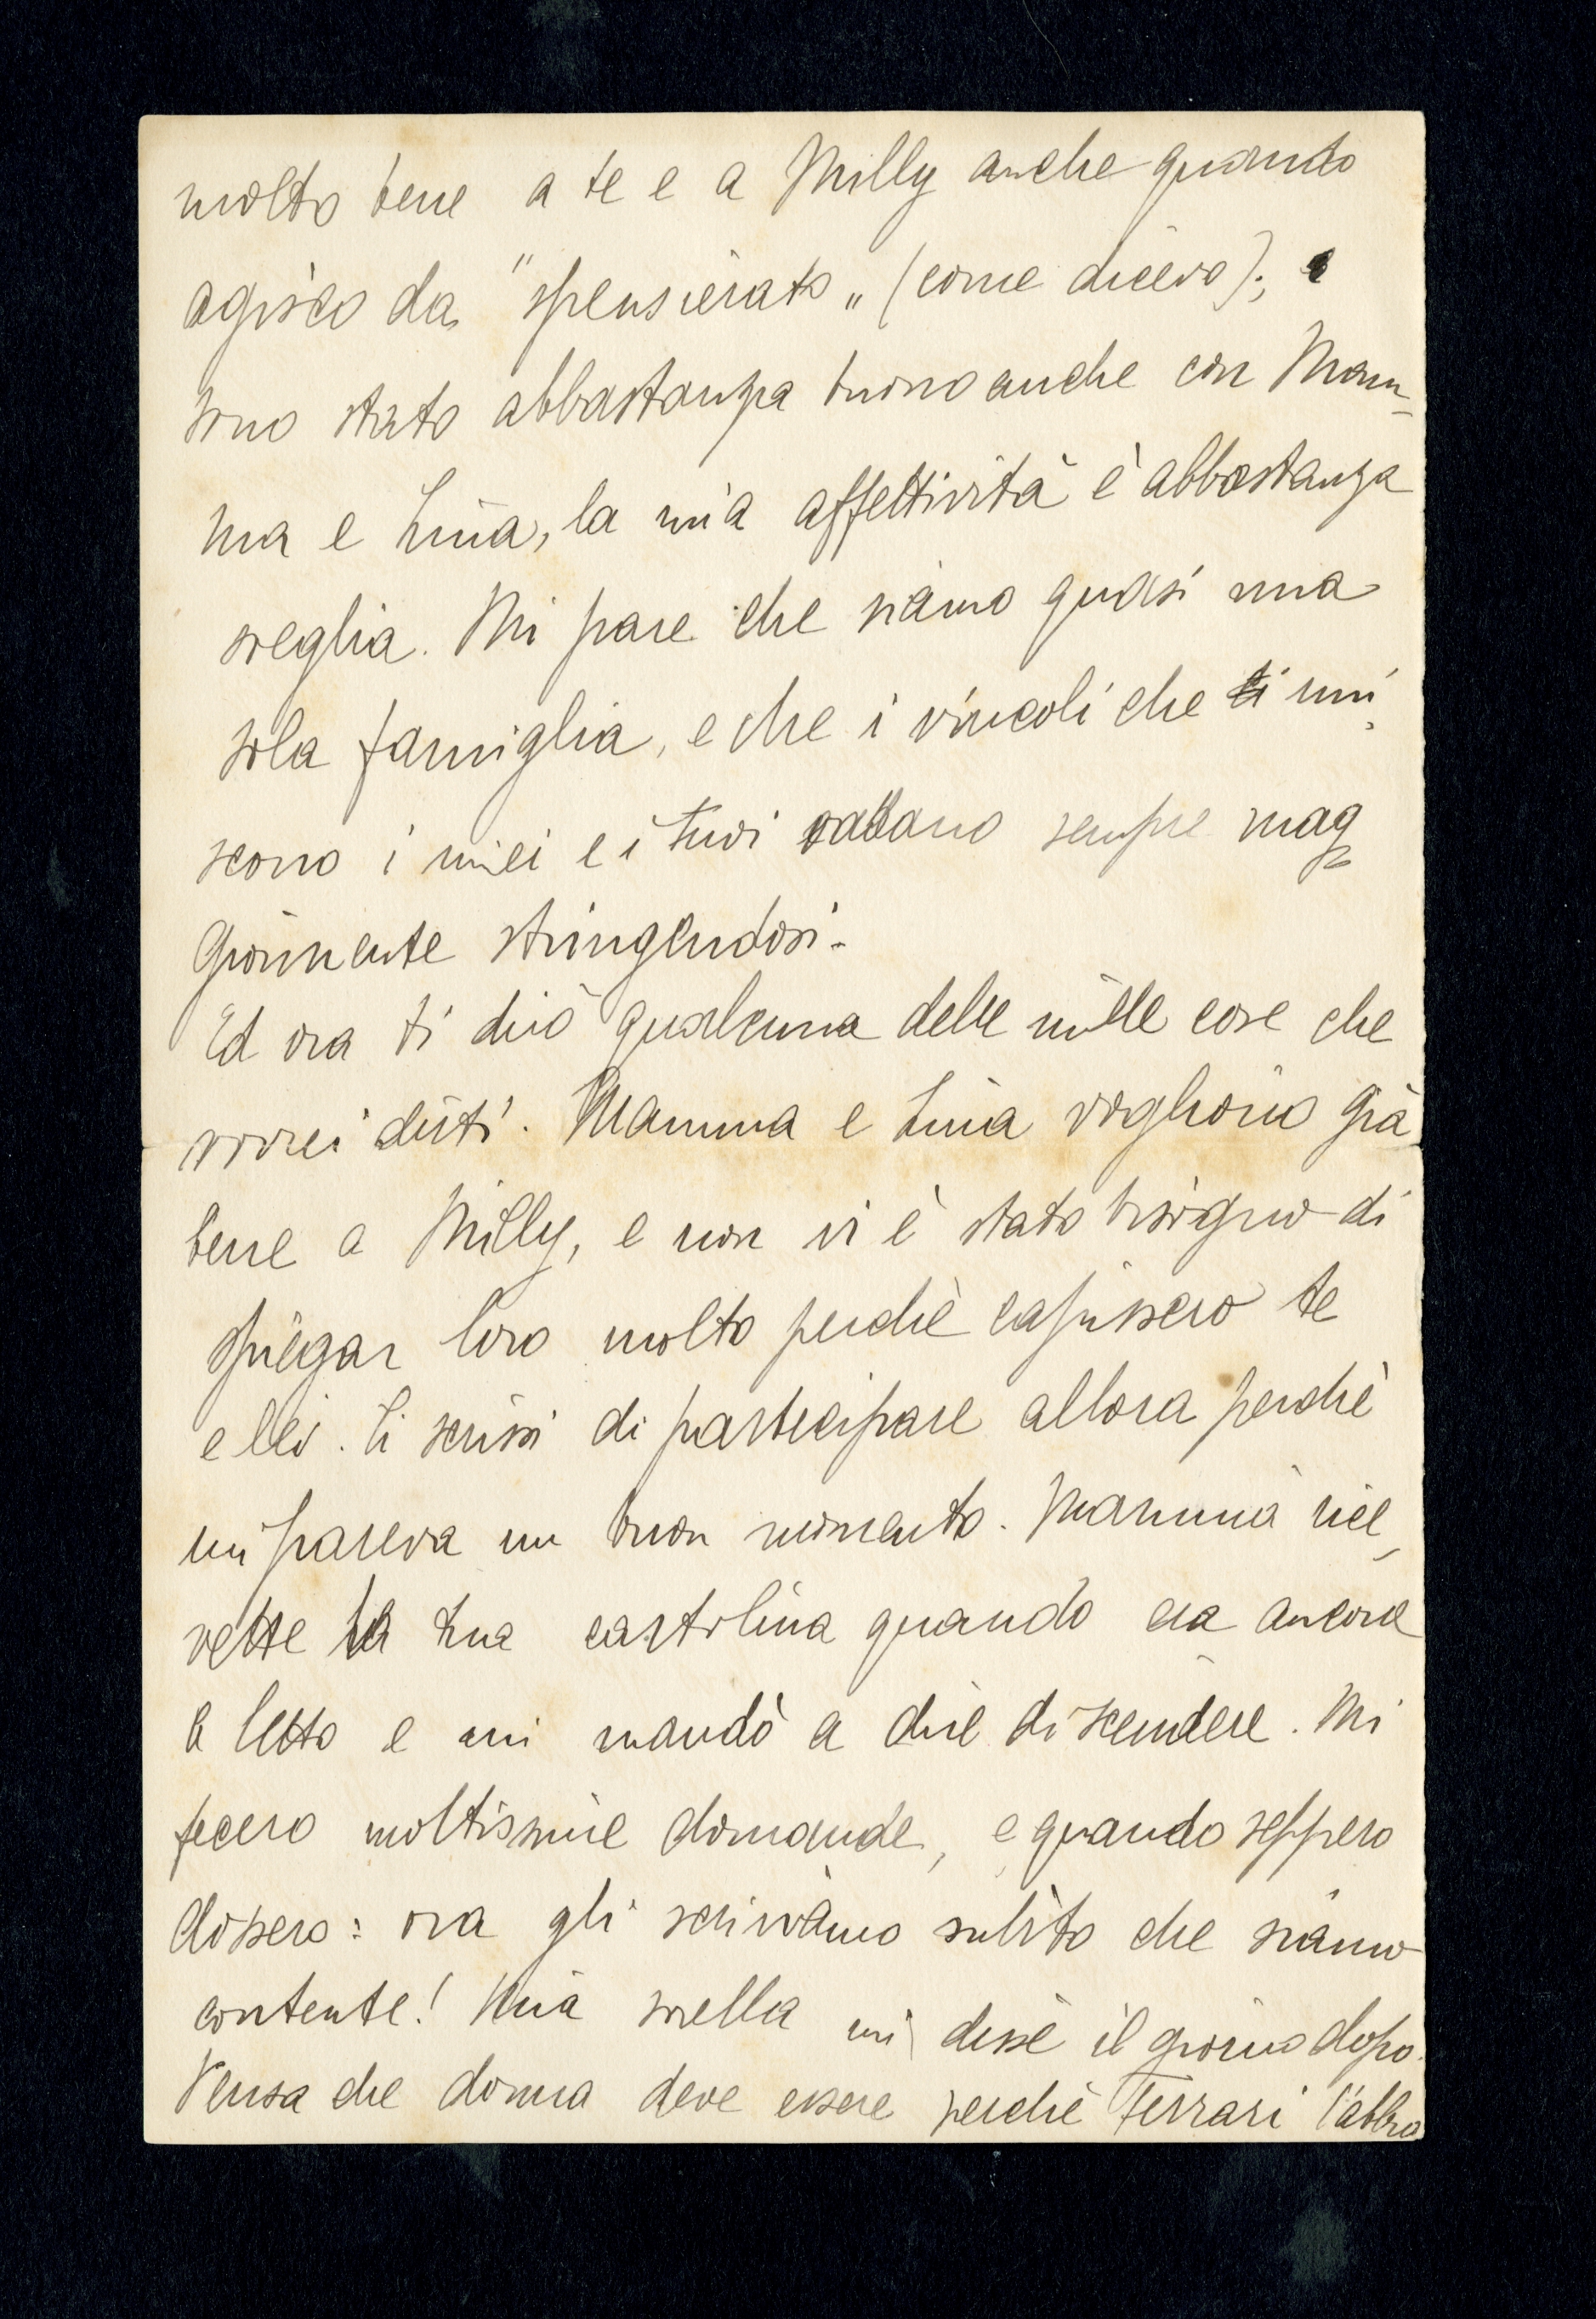 molto bene a te e a Milly anche quando
agisco da "spensierato„ (come dicevo); e
sono stato abbastanza buono anche con Mam-
ma e Lina, la mia affettività è abbastanza
sveglia. Mi pare che siamo quasi una
sola famiglia, e che i vincoli che ti uni-
scono i miei e i tuoi vadano sempre mag
giormente stringendosi.
Ed ora ti dirò qualcuna delle mille cose che
vorrei dirti. Mamma e Lina vogliono già
bene a Milly, e non vi è stato bisogno di
spiegar loro molto perchè capissero te
e lei. Ti scrissi di partecipare allora perchè
mi pareva un buon momento. Mamma rice-
vette la tua cartolina quando era ancora
a letto e mi mandò a dire di scendere. Mi
fecero moltissime domande, e quando seppero
dissero: ora gli scriviamo subito che siamo
contente! Mia sorella mi disse il giorno dopo.
Pensa che donna deve essere perchè Ferrari l'abbia